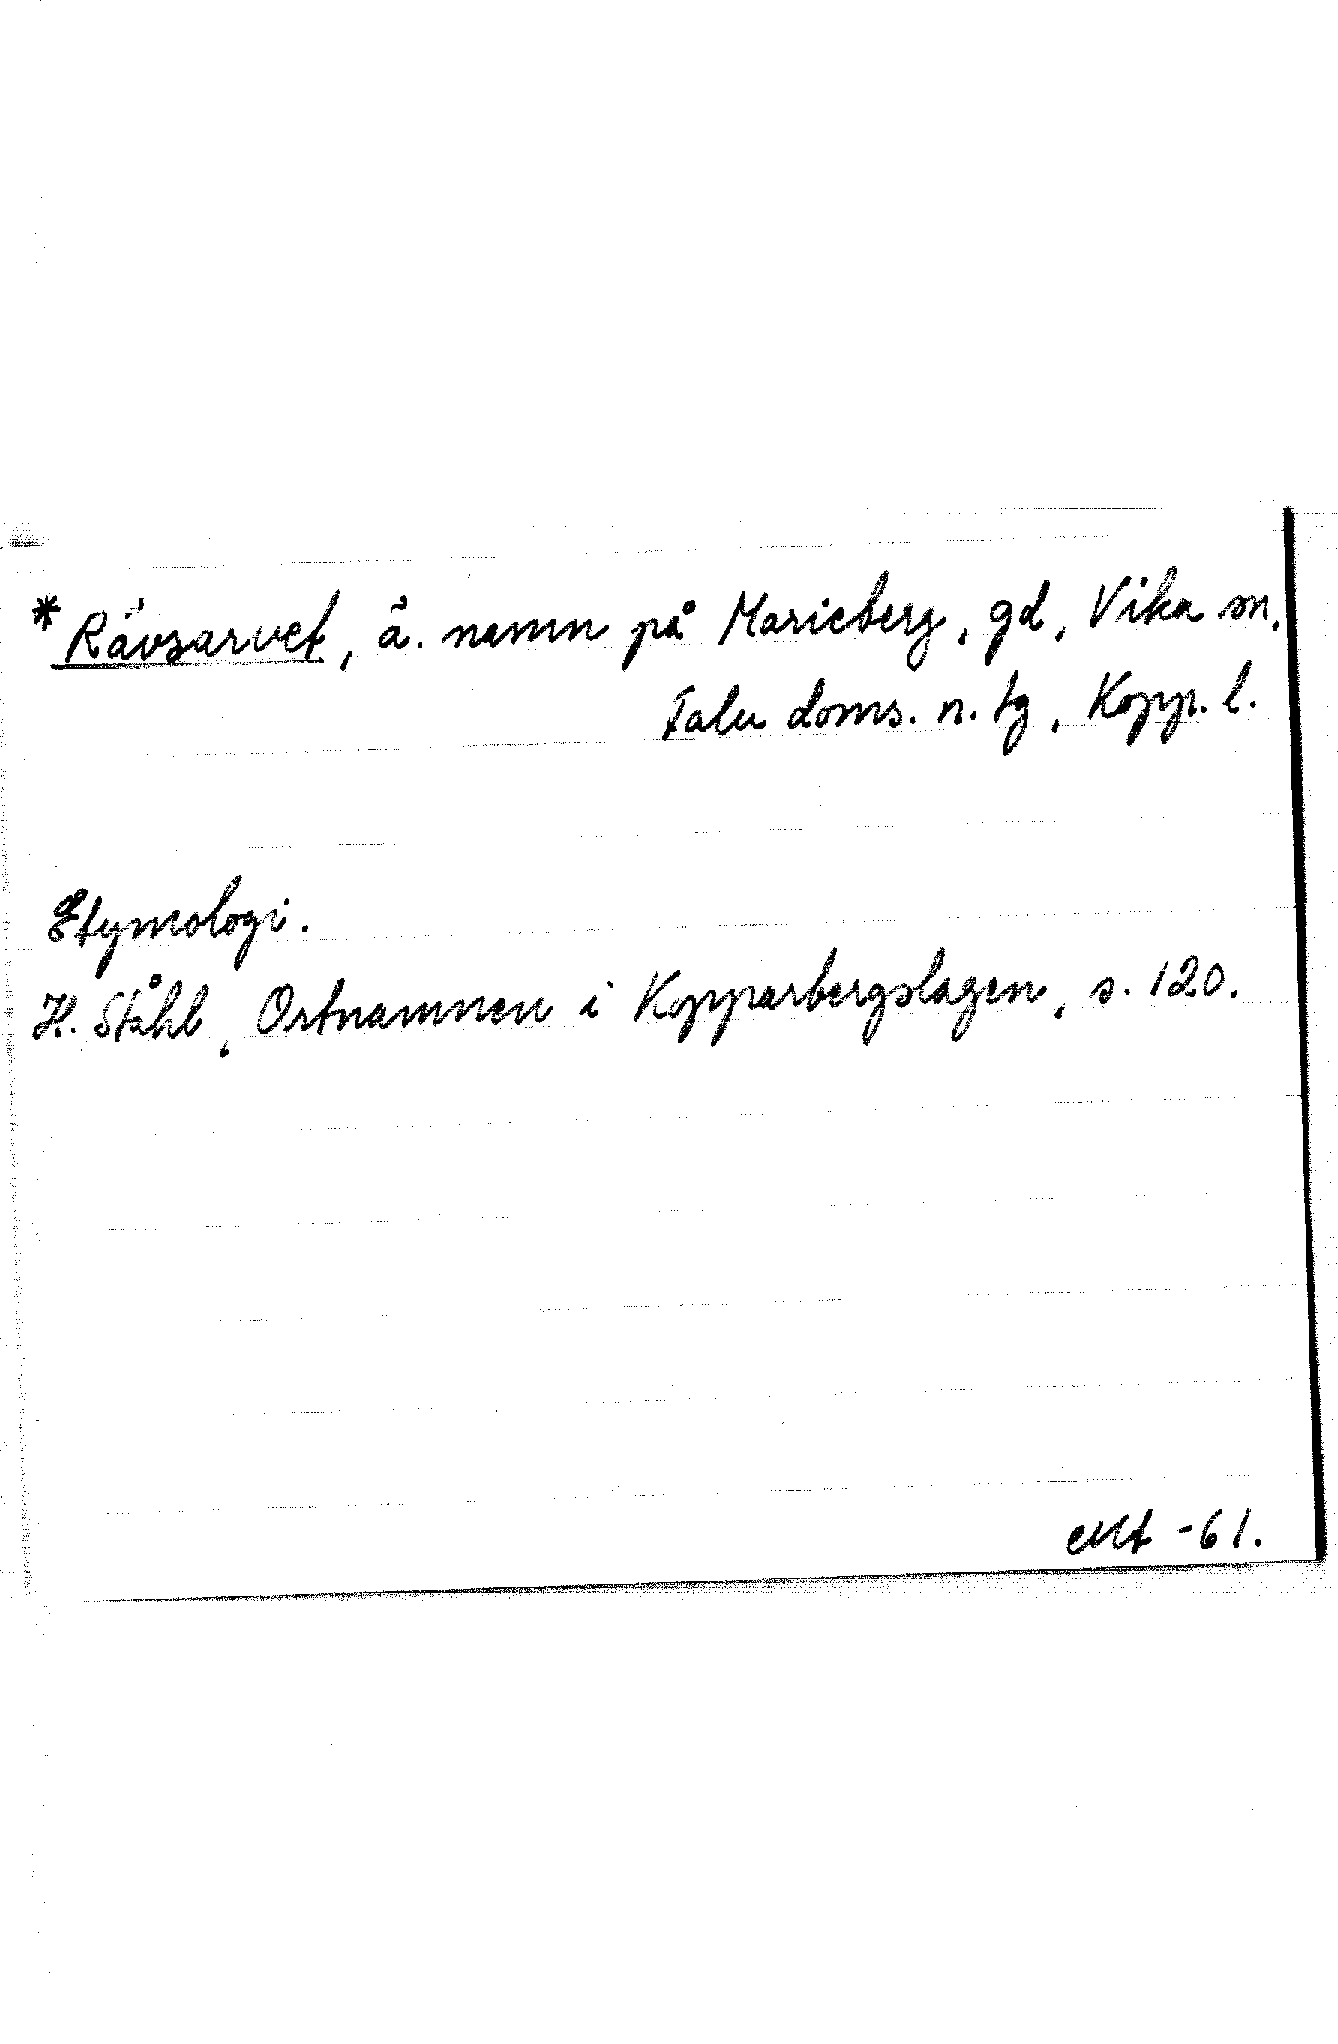 * Rävsarvet, ä. namn på Marieberg, gd, Vika sn,
Falu doms. n. tg, Kopp. l.
Etymologi.
H. Ståhl, Ortnamnen i Kopparbergslagen, s. 120.
-61.